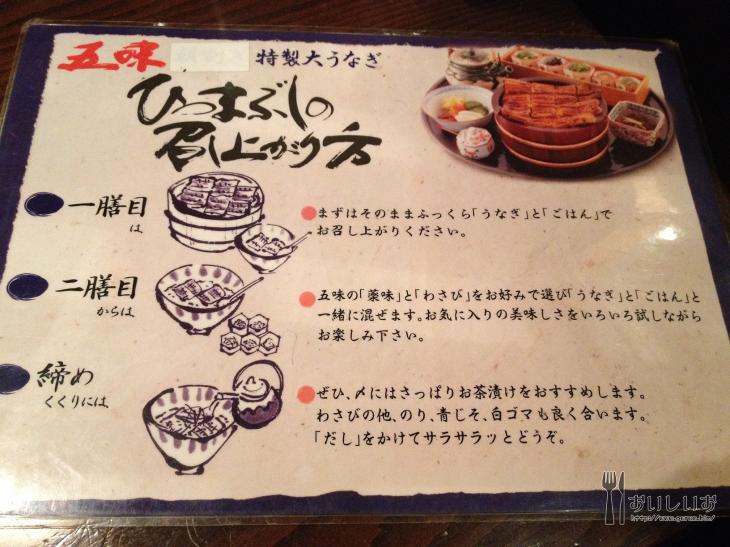 五味 特製大うなぎ
ひつまぶしの
召し上がり方
一膳目
は
まずはそのままふっくら「うなぎ」と「ごはん」で
お召し上がりください。
二膳目
からは
五味の「薬味」と「わさび」をお好みで選び「うなぎ」と「ごはん」と
一緒に混ぜます。お気に入りの美味しさをいろいろ試しながら
お楽しみ下さい。
締め
くくりには
ぜひ、〆にはさっぱりお茶漬けをおすすめします。
わさびの他、のり、青じそ、白ゴマも良く合います。
「だし」をかけてサラサラッとどうぞ。
おいしいお